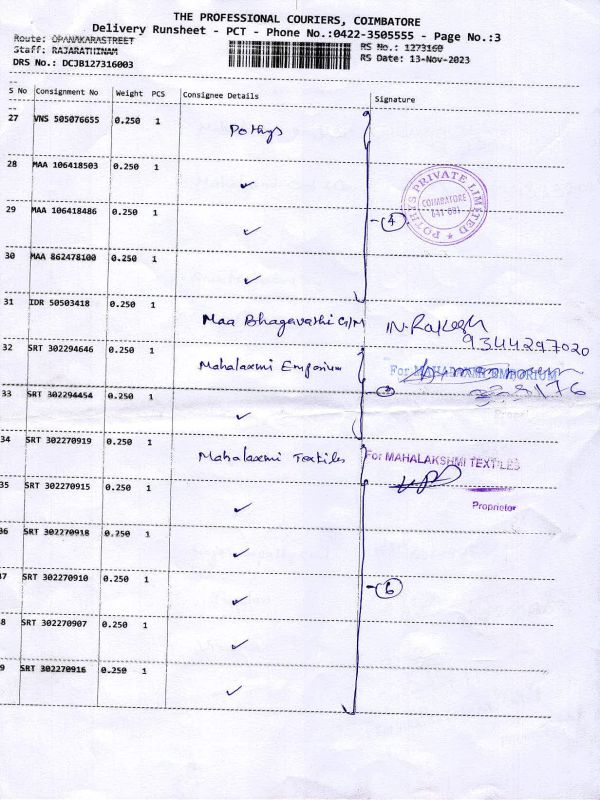 THE PROFESSIONAL COURIERS, COIMBATORE
Delivery Runsheet - PCT - Phone No.:0422-3505555 - Page No.:3
Route: OPANAKARASTREET
Staff: RAJARATHINAM
DRS No.: DCJB127316003
RS No.: 1273160
RS Date: 13-Nov-2023
S No Consignment No Weight PCS Consignee Details Signature
27 VNS 505076655 0.250 1 Pothys
28 MAA 106418503 0.250 1 ✓
POTHYS PRIVATE LIMITED
COIMBATORE
641-001
29 MAA 106418486 0.250 1 ✓ 4
30 MAA 862478100 0.250 1 ✓
31 IDR 50503418 0.250 1 Maa Bhagavathi G/M N. Rakesh
9344297020
32 SRT 302294646 0.250 1 Mahalaxmi Emporium For MAHALAXMI EMPORIUM
33 SRT 302294454 0.250 1 ✓
34 SRT 302270919 0.250 1 Mahalaxmi Textiles For MAHALAKSHMI TEXTILES
35 SRT 302270915 0.250 1 ✓ Proprietor
36 SRT 302270918 0.250 1 ✓
37 SRT 302270910 0.250 1 ✓ 6
8 SRT 302270907 0.250 1 ✓
9 SRT 302270916 0.250 1 ✓